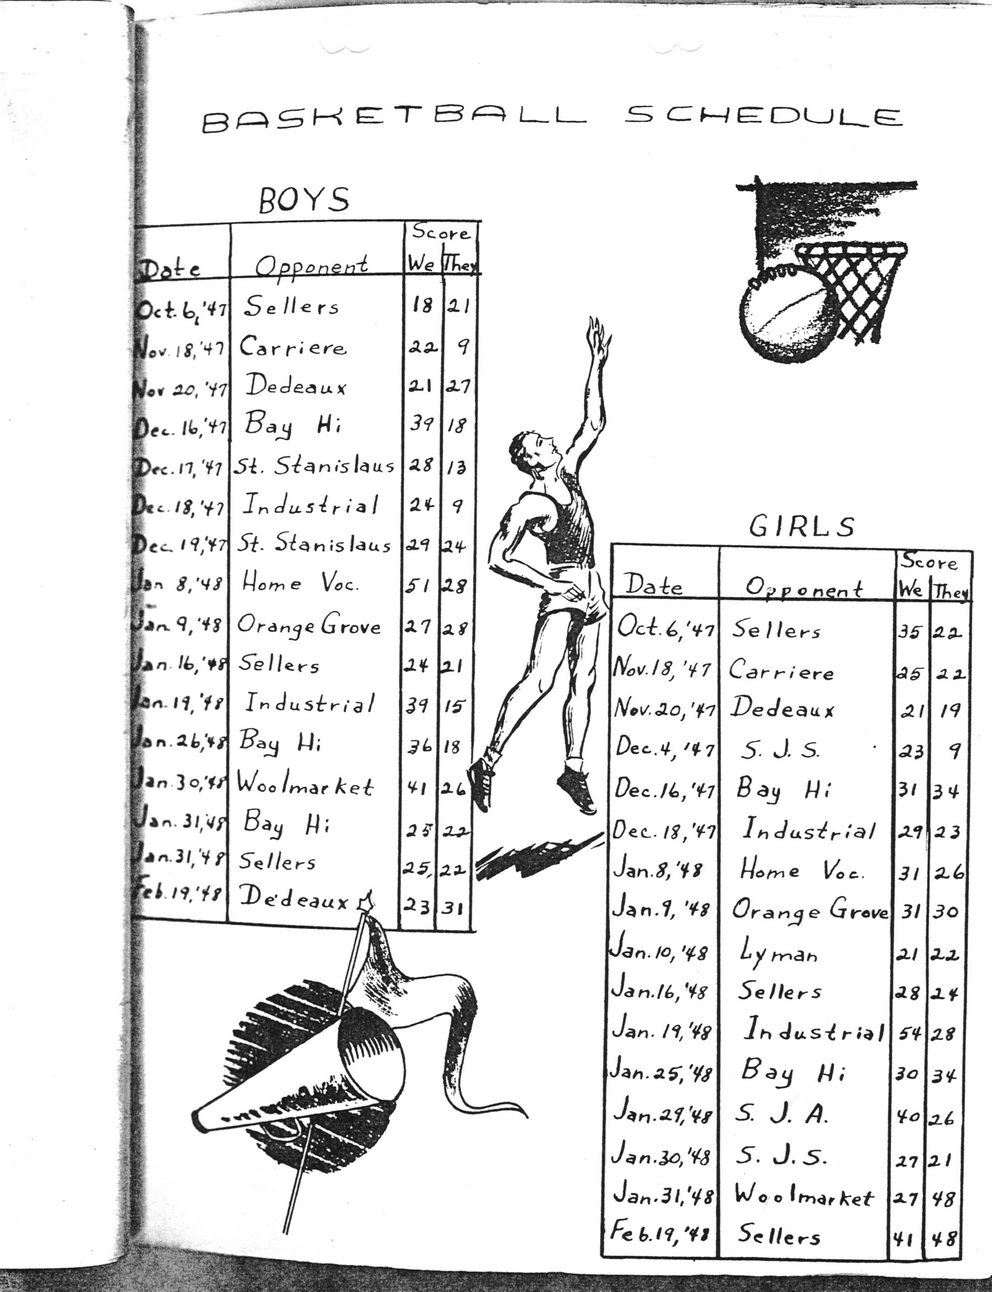 BASKETBALL SCHEDULE
BOYS
Score
Date Opponent We They
Oct. 6, '47 Sellers 18 21
Nov. 18, '47 Carriere 22 9
Nov 20, '47 Dedeaux 21 27
Dec. 16, '47 Bay Hi 39 18
Dec. 17, '47 St. Stanislaus 28 13
Dec. 18, '47 Industrial 24 9
Dec. 19, '47 St. Stanislaus 29 24
Jan 8, '48 Home Voc. 51 28
Jan. 9, '48 Orange Grove 27 28
Jan. 16, '48 Sellers 24 21
Jan. 19, '48 Industrial 39 15
Jan. 26, '48 Bay Hi 36 18
Jan. 30, '48 Woolmarket 41 26
Jan. 31, '48 Bay Hi 25 22
Jan. 31, '48 Sellers 25, 22
Feb. 19, '48 Dedeaux 23 31
GIRLS
Score
Date Opponent We They
Oct. 6, '47 Sellers 35 22
Nov. 18, '47 Carriere 25 22
Nov. 20, '47 Dedeaux 21 19
Dec. 4, '47 S. J. S. 23 9
Dec. 16, '47 Bay Hi 31 34
Dec. 18, '47 Industrial 29 23
Jan. 8, '48 Home Voc. 31 26
Jan. 9, '48 Orange Grove 31 30
Jan. 10, '48 Lyman 21 22
Jan. 16, '48 Sellers 28 24
Jan. 19, '48 Industrial 54 28
Jan. 25, '48 Bay Hi 30 34
Jan. 29, '48 S. J. A. 40 26
Jan. 30, '48 S. J. S. 27 21
Jan. 31, '48 Woolmarket 27 48
Feb. 19, '48 Sellers 41 48